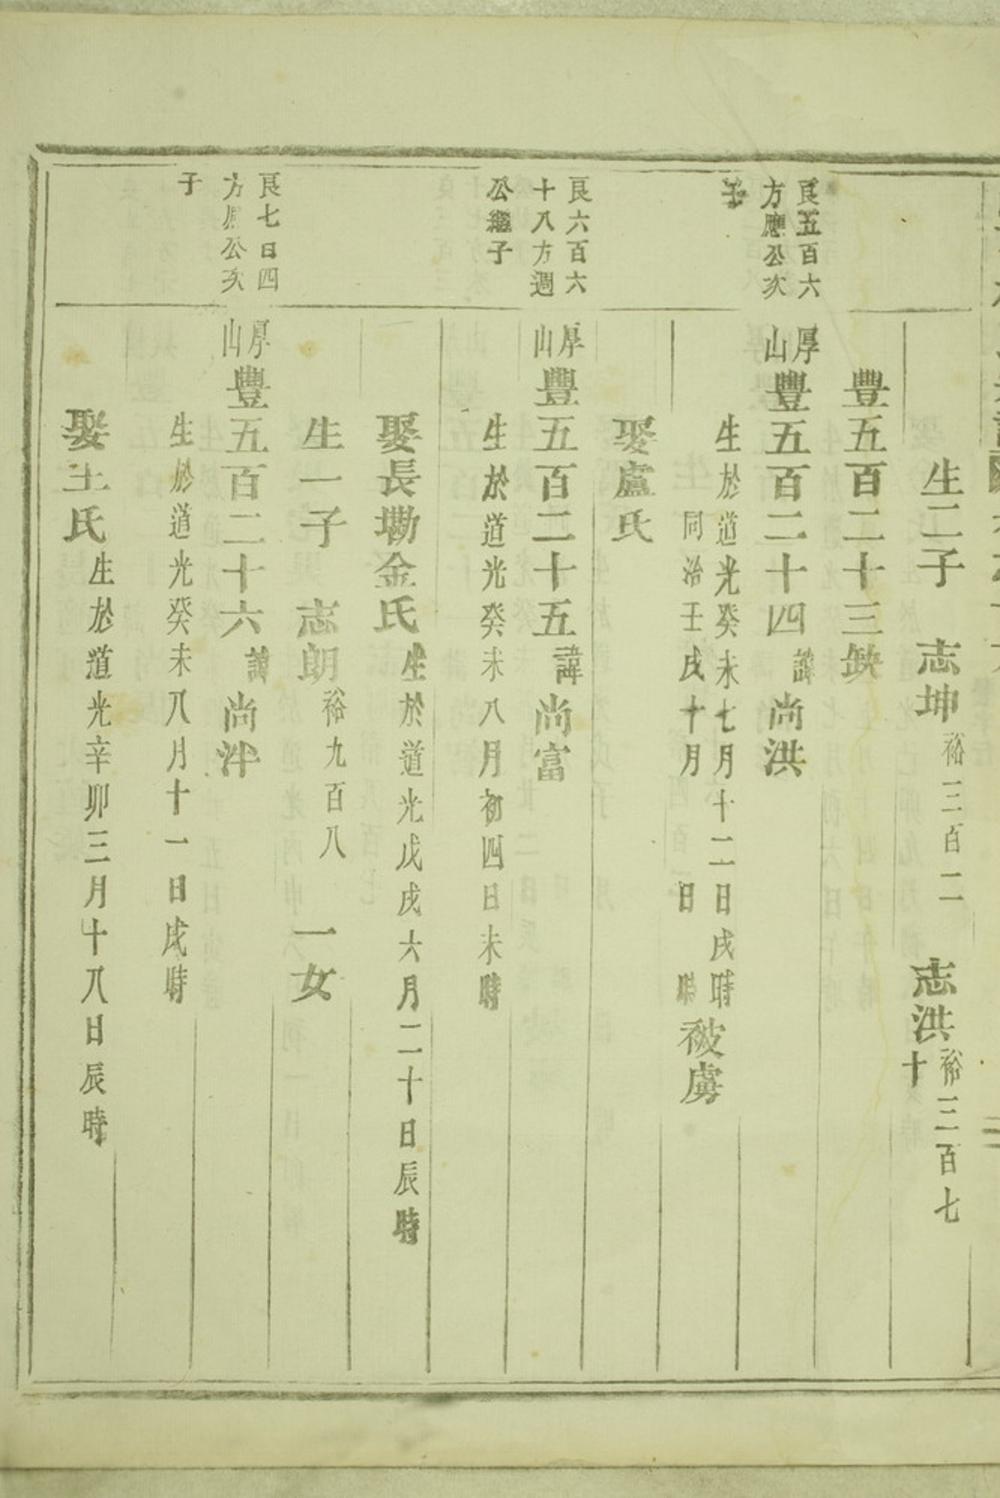 生二子 志坤 裕三百二 志洪 裕三百七十
豐五百二十三缺
良五百六
方應公次
子
厚山 豐五百二十四 諱 尚洪
生於道光癸未七月十二日戌時
同治壬戌十月 日 時 被虜
娶盧氏
良六百六
十八方週
公繼子
厚山 豐五百二十五 諱 尚富
生於道光癸未八月初四日未時
娶長塘金氏 生於道光戊戌六月二十日辰時
生一子 志朗 裕九百八 一女
良七百四
方應公次
子
厚山 豐五百二十六 諱 尚泮
生於道光癸未八月十一日戌時
娶王氏 生於道光辛卯三月十八日辰時